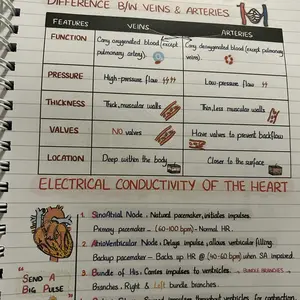 DIFFERENCE B/W VEINS & ARTERIES
FEATURES VEINS ARTERIES
FUNCTION Carry oxygenated blood (except pulmonary artery). Carry deoxygenated blood (except pulmonary veins).
PRESSURE High-pressure flow Low-pressure flow
THICKNESS Thick, muscular walls Thin, less muscular walls
VALVES NO valves Have valves to prevent backflow
LOCATION Deep within the body Closer to the surface
ELECTRICAL CONDUCTIVITY OF THE HEART
1. SinoAtrial Node: Natural pacemaker, initiates impulses.
Primary pacemaker - (60-100 bpm) - Normal HR.
2. AtrioVentricular Node: Delays impulse, allows ventricular filling.
Backup pacemaker - Backs up HR @ (40-60 bpm) when SA impaired.
3. Bundle of His: Carries impulses to ventricles. BUNDLE BRANCHES
Branches, Right & Left bundle branches.
"SEND A
BIG PULSE
impulses throughout ventricles for contraction